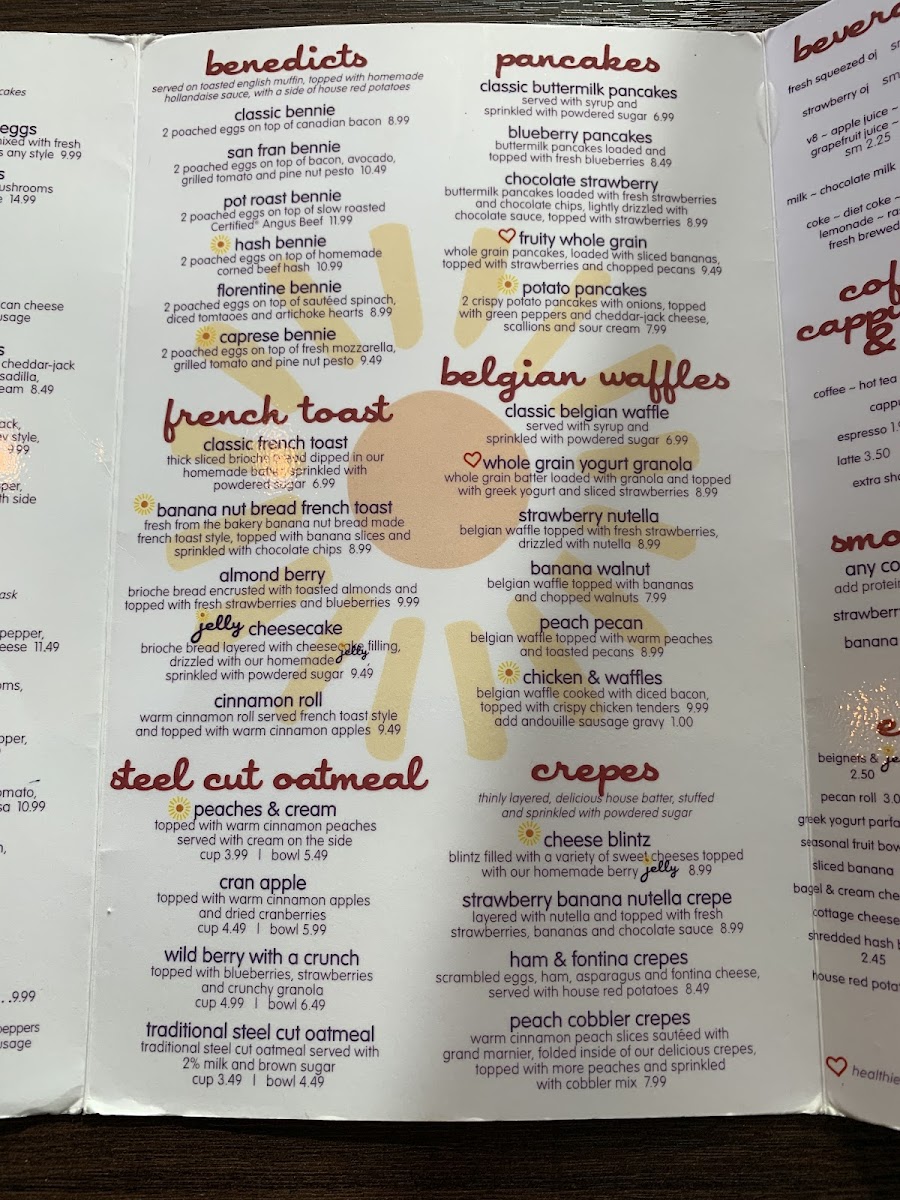 cakes
eggs
nixed with fresh
s any style 9.99
s
ushrooms
e 14.99
can cheese
usage
s
cheddar-jack
sadilla,
eam 8.49
ack,
ey style,
9.99
per,
th side
ask
pepper,
eese 11.49
oms,
pper,
omato,
sa 10.99
n,
. .9.99
peppers
usage
benedicts
served on toasted english muffin, topped with homemade
hollandaise sauce, with a side of house red potatoes
classic bennie
2 poached eggs on top of canadian bacon 8.99
san fran bennie
2 poached eggs on top of bacon, avocado,
grilled tomato and pine nut pesto 10.49
pot roast bennie
2 poached eggs on top of slow roasted
Certified® Angus Beef 11.99
hash bennie
2 poached eggs on top of homemade
corned beef hash 10.99
florentine bennie
2 poached eggs on top of sautéed spinach,
diced tomtaoes and artichoke hearts 8.99
caprese bennie
2 poached eggs on top of fresh mozzarella,
grilled tomato and pine nut pesto 9.49
french toast
classic french toast
thick sliced brioche bread dipped in our
homemade batter, sprinkled with
powdered sugar 6.99
banana nut bread french toast
fresh from the bakery banana nut bread made
french toast style, topped with banana slices and
sprinkled with chocolate chips 8.99
almond berry
brioche bread encrusted with toasted almonds and
topped with fresh strawberries and blueberries 9.99
jelly cheesecake
brioche bread layered with cheesecake filling,
drizzled with our homemade jelly,
sprinkled with powdered sugar 9.49
cinnamon roll
warm cinnamon roll served french toast style
and topped with warm cinnamon apples 9.49
steel cut oatmeal
peaches & cream
topped with warm cinnamon peaches
served with cream on the side
cup 3.99 | bowl 5.49
cran apple
topped with warm cinnamon apples
and dried cranberries
cup 4.49 | bowl 5.99
wild berry with a crunch
topped with blueberries, strawberries
and crunchy granola
cup 4.99 | bowl 6.49
traditional steel cut oatmeal
traditional steel cut oatmeal served with
2% milk and brown sugar
cup 3.49 | bowl 4.49
pancakes
classic buttermilk pancakes
served with syrup and
sprinkled with powdered sugar 6.99
blueberry pancakes
buttermilk pancakes loaded and
topped with fresh blueberries 8.49
chocolate strawberry
buttermilk pancakes loaded with fresh strawberries
and chocolate chips, lightly drizzled with
chocolate sauce, topped with strawberries 8.99
fruity whole grain
whole grain pancakes, loaded with sliced bananas,
topped with strawberries and chopped pecans 9.49
potato pancakes
2 crispy potato pancakes with onions, topped
with green peppers and cheddar-jack cheese,
scallions and sour cream 7.99
belgian waffles
classic belgian waffle
served with syrup and
sprinkled with powdered sugar 6.99
whole grain yogurt granola
whole grain batter loaded with granola and topped
with greek yogurt and sliced strawberries 8.99
strawberry nutella
belgian waffle topped with fresh strawberries,
drizzled with nutella 8.99
banana walnut
belgian waffle topped with bananas
and chopped walnuts 7.99
peach pecan
belgian waffle topped with warm peaches
and toasted pecans 8.99
chicken & waffles
belgian waffle cooked with diced bacon,
topped with crispy chicken tenders 9.99
add andouille sausage gravy 1.00
crepes
thinly layered, delicious house batter, stuffed
and sprinkled with powdered sugar
cheese blintz
blintz filled with a variety of sweet cheeses topped
with our homemade berry jelly 8.99
strawberry banana nutella crepe
layered with nutella and topped with fresh
strawberries, bananas and chocolate sauce 8.99
ham & fontina crepes
scrambled eggs, ham, asparagus and fontina cheese,
served with house red potatoes 8.49
peach cobbler crepes
warm cinnamon peach slices sautéed with
grand marnier, folded inside of our delicious crepes,
topped with more peaches and sprinkled
with cobbler mix 7.99
bevera
fresh squeezed oj sm
strawberry oj sm
v8 ~ apple juice ~
grapefruit juice ~
sm 2.25
milk ~ chocolate milk
coke ~ diet coke ~
lemonade ~ ra
fresh brewed
cof
cappu
&
coffee ~ hot tea
capp
espresso 1.9
latte 3.50
extra sho
smo
any co
add protein
strawberr
banana
e
beignets & je
2.50
pecan roll 3.0
greek yogurt parfa
seasonal fruit bow
sliced banana
bagel & cream che
cottage cheese
shredded hash b
2.45
house red pota
healthie